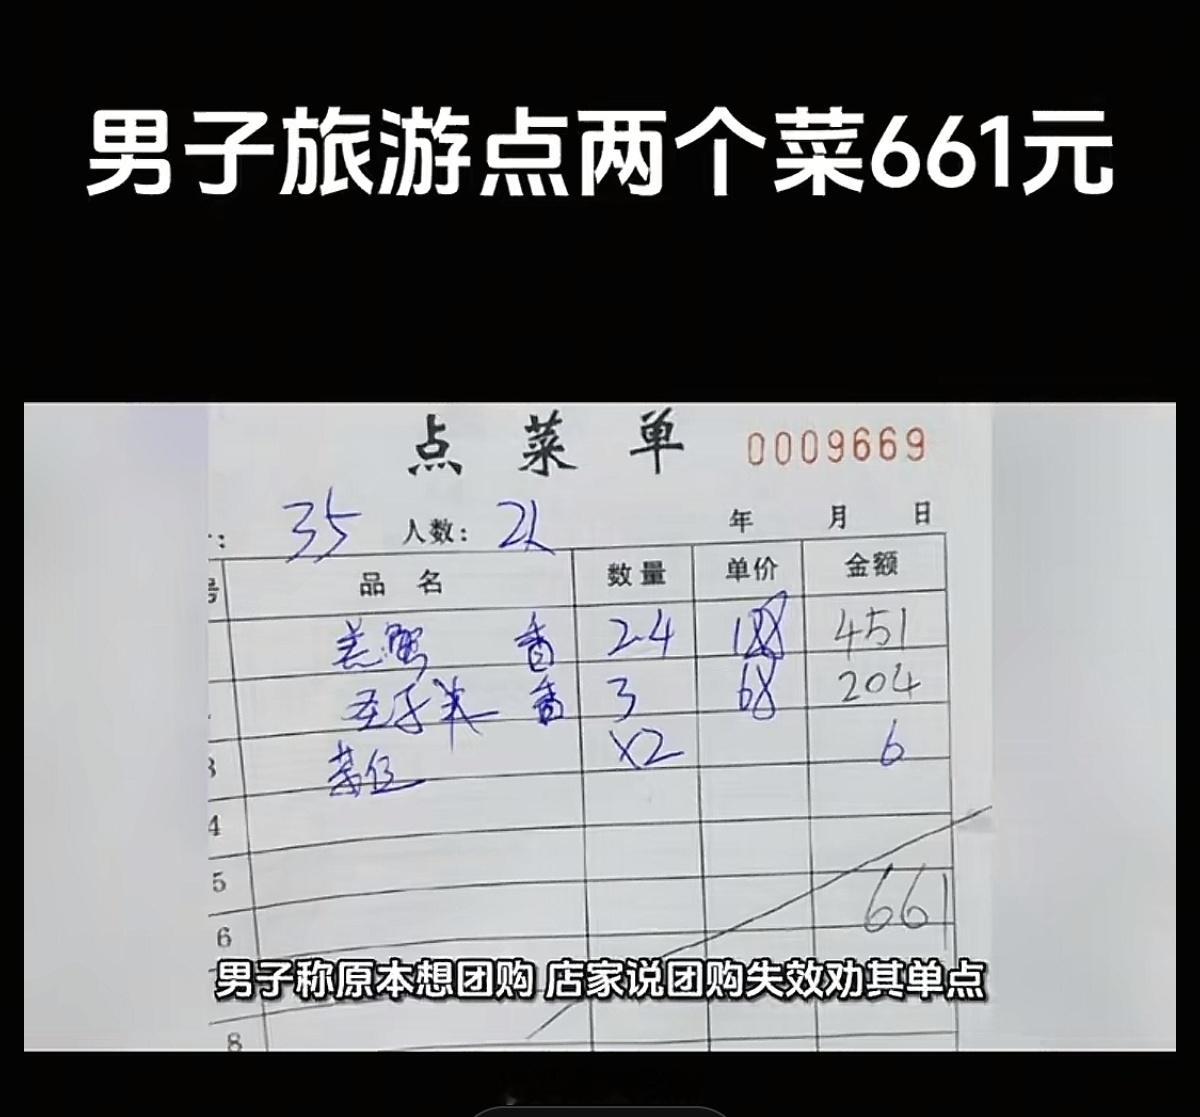 男子旅游点两个菜661元
点菜单 0009669
: 35 人数: 2人 年 月 日
号 品名 数量 单价 金额
羔蟹 香 2.4 188 451
圣子米 香 3 68 204
3 茶位 ×2 6
4
5
661
6
男子称原本想团购 店家说团购失效劝其单点
8